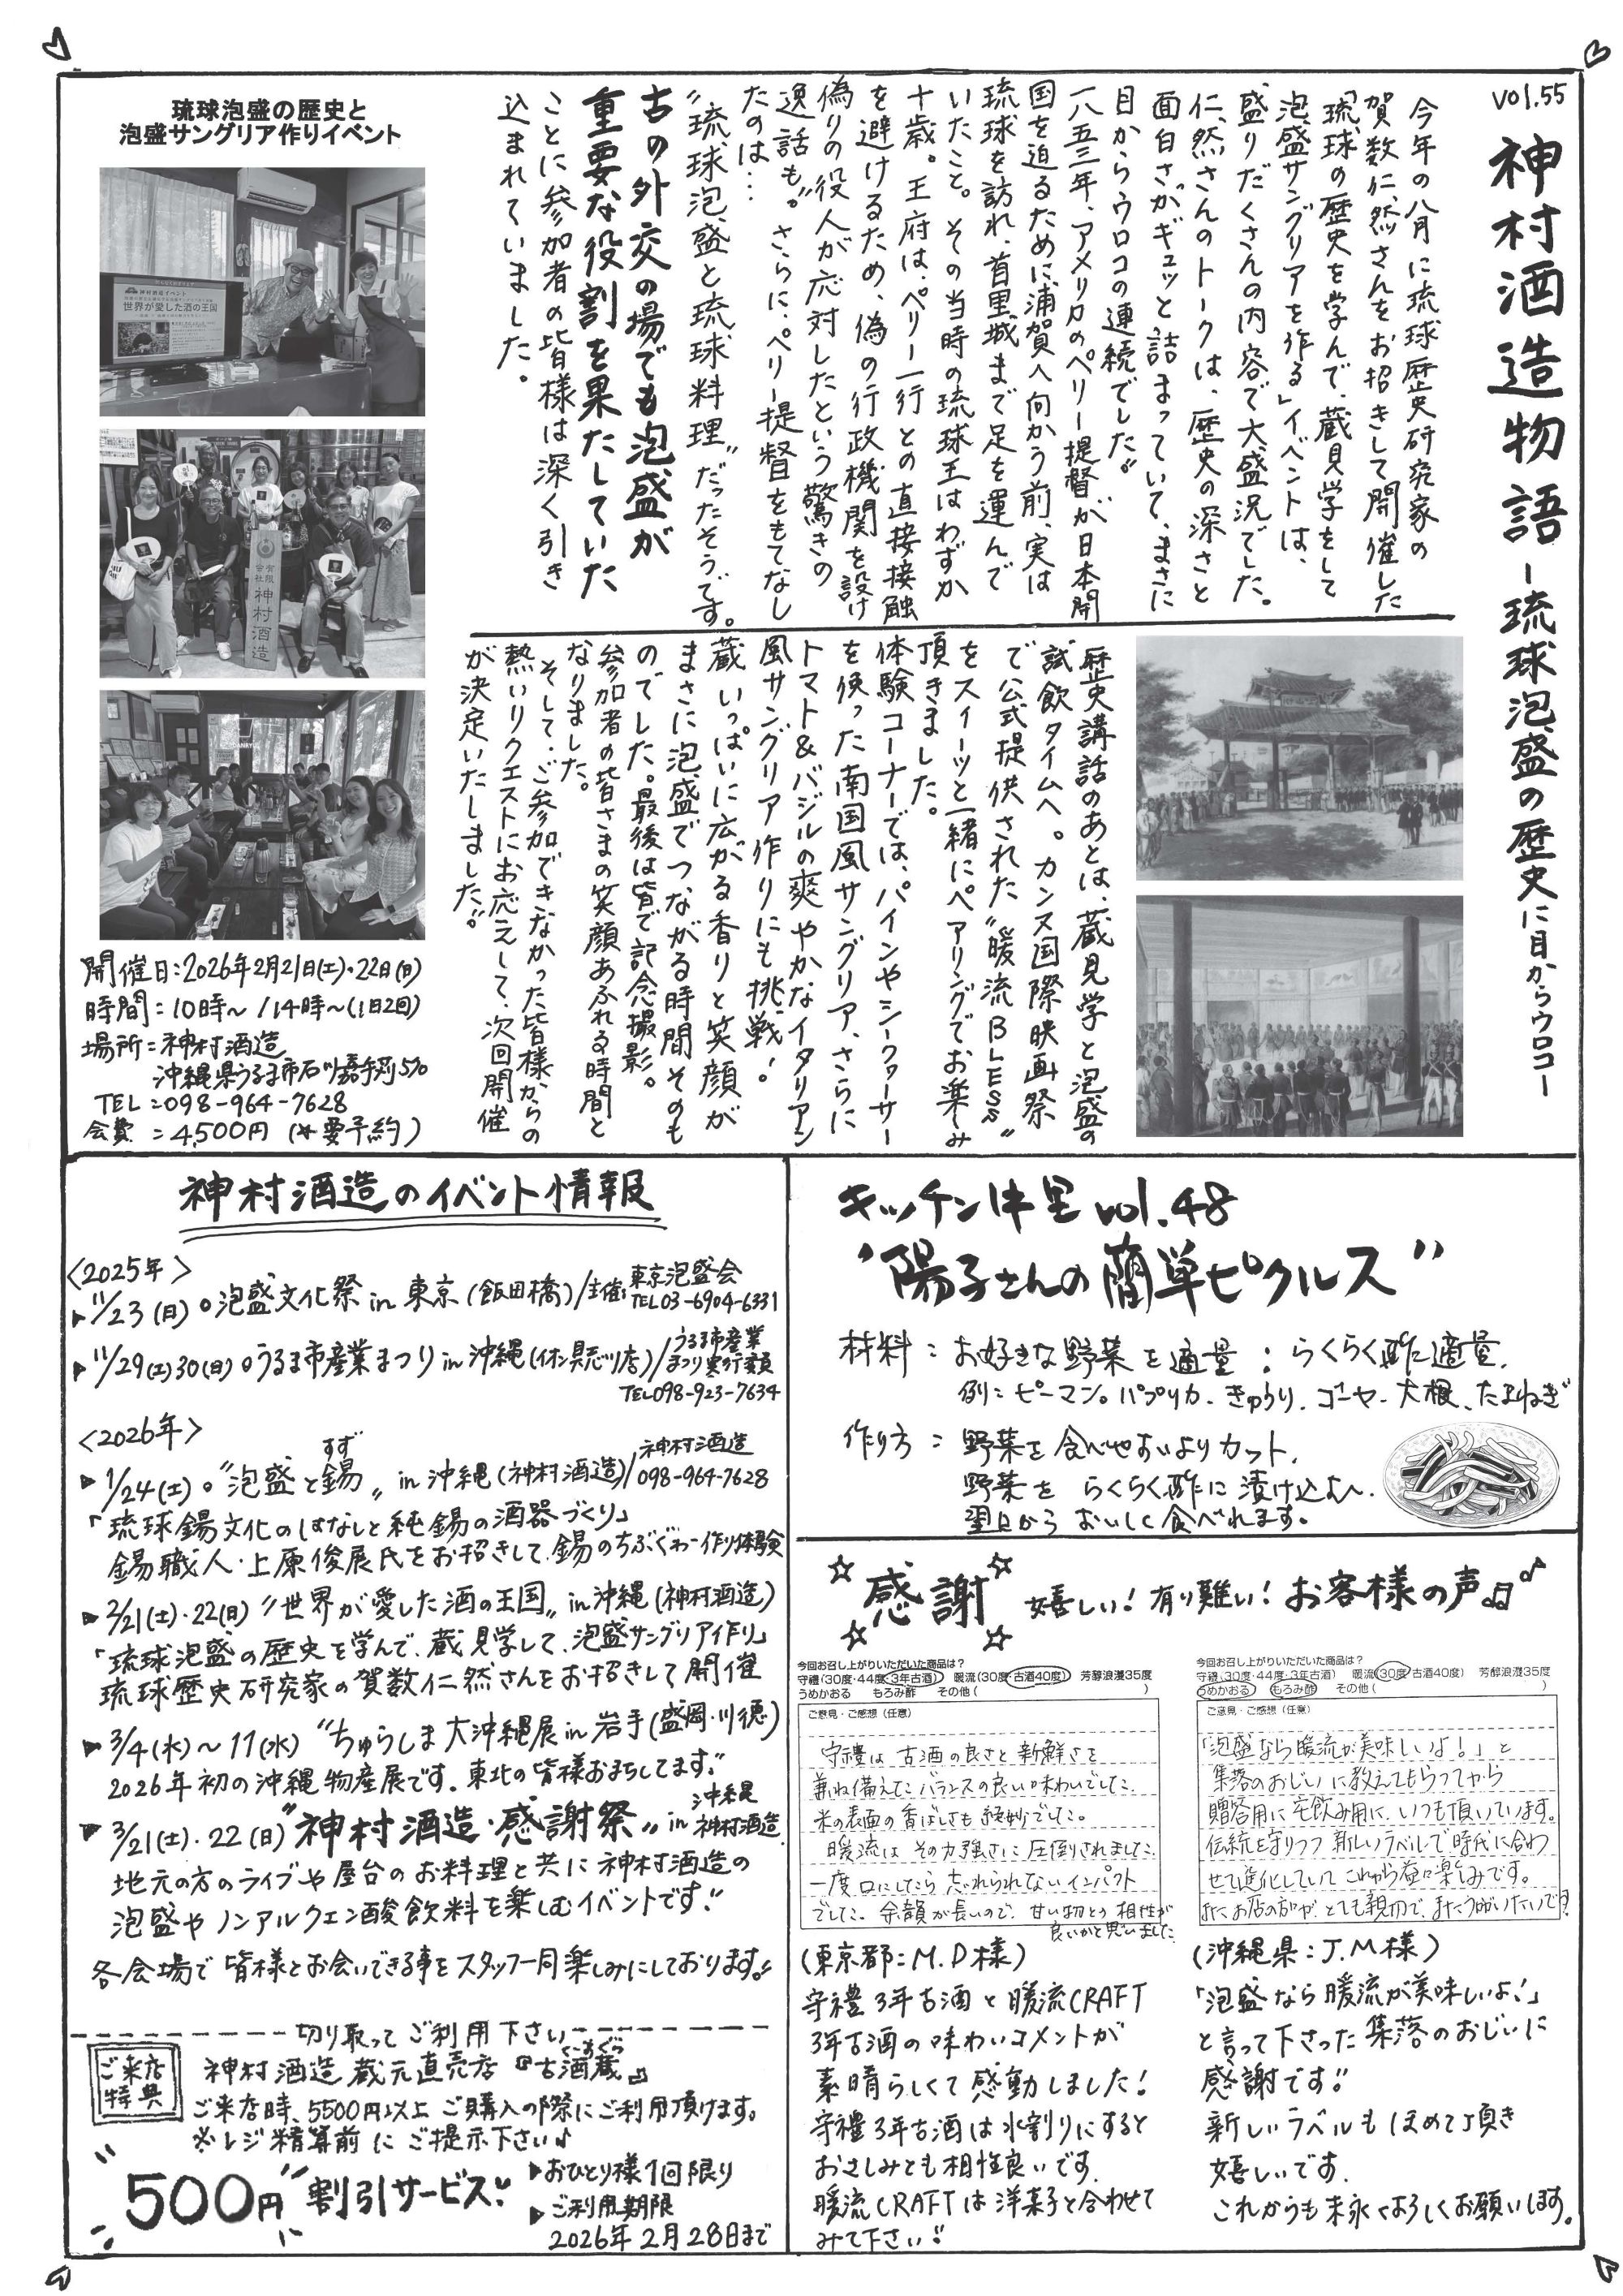 vol.55
神村酒造物語 －琉球泡盛の歴史に目からウロコ－
今年の八月に琉球歴史研究家の
賀数仁然さんをお招きして開催した
「琉球の歴史を学んで、蔵見学をして
泡盛サングリアを作る」イベントは、
盛りだくさんの内容で大盛況でした。
仁然さんのトークは、歴史の深さと
面白さがギュッと詰まっていて、まさに
目からウロコの連続でした〟
一八五三年、アメリカのペリー提督が日本開
国を迫るために浦賀へ向かう前、実は
琉球を訪れ、首里城まで足を運んで
いたこと。その当時の琉球王はわずか
十歳。王府は、ペリー一行との直接接触
を避けるため、偽の行政機関を設け
偽りの役人が応対したという驚きの
逸話も〟。さらに、ペリー提督をもてなし
たのは…
〝琉球泡盛と琉球料理〟だったそうです。
古の外交の場でも泡盛が
重要な役割を果たしていた
ことに参加者の皆様は深く引き
込まれていました。
歴史講話のあとは、蔵見学と泡盛の
試飲タイムへ。カンヌ国際映画祭
で公式提供された〝暖流BLESS〟
をスイーツと一緒にペアリングでお楽しみ
頂きました。
体験コーナーでは、パインやシークヮーサー
を使った南国風サングリア、さらに
トマト&バジルの爽やかなイタリアン
風サングリア作りにも挑戦！
蔵いっぱいに広がる香りと笑顔が
まさに泡盛でつながる時間そのも
のでした。最後は皆で記念撮影。
参加者の皆さまの笑顔あふれる時間と
なりました。
そして、ご参加できなかった皆様からの
熱いリクエストにお応えして、次回開催
が決定いたしました〟
琉球泡盛の歴史と
泡盛サングリア作りイベント
神村酒造イベント
世界が愛した酒の王国
有限会社 神村酒造
開催日：2026年2月21日(土)・22日(日)
時間：10時〜/14時〜(1日2回)
場所：神村酒造
沖縄県うるま市石川嘉手苅570
TEL：098-964-7628
会費：4,500円 (※要予約)
神村酒造のイベント情報
＜2025年＞
▶11/23(日)。泡盛文化祭 in 東京(飯田橋)/主催：東京泡盛会
TEL03-6904-6331
▶11/29(土)30(日)。うるま市産業まつり in 沖縄(イオン具志川店)/うるま市産業
まつり実行委員
TEL098-923-7634
＜2026年＞
▶1/24(土)。〝泡盛と錫〟in 沖縄(神村酒造)/神村酒造
すず
098-964-7628
「琉球錫文化のはなしと純錫の酒器づくり」
錫職人・上原俊展氏をお招きして、錫のちぶぐゎー作り体験
▶2/21(土)・22(日)〝世界が愛した酒の王国〟in沖縄(神村酒造)
「琉球泡盛の歴史を学んで、蔵見学して、泡盛サングリア作り」
琉球歴史研究家の賀数仁然さんをお招きして開催
▶3/4(水)〜11(水) 〝ちゅらしま大沖縄展 in 岩手(盛岡・川徳)
2026年初の沖縄物産展です。東北の皆様おまちしてます〟
▶3/21(土)・22(日)〝神村酒造・感謝祭〟in 沖縄
神村酒造
地元の方のライブや屋台のお料理と共に神村酒造の
泡盛やノンアルクエン酸飲料を楽しむイベントです〟
各会場で皆様とお会いできる事をスタッフ一同楽しみにしております〟
切り取ってご利用下さい
ご来店
特典
神村酒造 蔵元直売店『古酒蔵』
くーすぐら
ご来店時、5500円以上ご購入の際にご利用頂けます。
※レジ精算前にご提示下さい♪
〝500円〟割引サービス！
▶おひとり様1回限り
▶ご利用期限
2026年2月28日まで
キッチン仲里 vol.48
〝陽子さんの簡単ピクルス〟
材料：お好きな野菜を適量：らくらく酢適量、
例：ピーマン。パプリカ、きゅうり、ゴーヤー、大根、たまねぎ
作り方：野菜を食べやすいようカット、
野菜をらくらく酢に漬け込む〜、
翌日からおいしく食べれます。
☆感謝☆ 嬉しい！有り難い！お客様の声♫♪
今回お召し上がりいただいた商品は？
守禮(30度・44度・3年古酒) 暖流(30度・古酒40度) 芳醇浪漫35度
うめかおる もろみ酢 その他( )
ご意見・ご感想（任意）
守禮は 古酒の良さと 新鮮さを
兼ね備えた バランスの良い味わいでした。
米の表面の香ばしさも絶妙でした。
暖流は その力強さに 圧倒されました。
一度口にしたら 忘れられないインパクト
でした。余韻が長いので、甘い物との相性が
良いかと思いました
(東京都：M.D様)
守禮3年古酒と暖流CRAFT
3年古酒の味わいコメントが
素晴らしくて感動しました！
守禮3年古酒は水割りにすると
おさしみとも相性良いです。
暖流CRAFTは洋菓子と合わせて
みて下さい〟
今回お召し上がりいただいた商品は？
守禮(30度・44度・3年古酒) 暖流(30度・古酒40度) 芳醇浪漫35度
うめかおる もろみ酢 その他( )
ご意見・ご感想（任意）
「泡盛なら暖流が美味しいよ！」と
集落のおじいに教えてもらってから
贈答用に宅飲み用に、いつも頂いています。
伝統を守りつつ 新しいラベルで時代に合わ
せて進化していて これから益々楽しみです。
またお店の方が、とても親切で、またうかがいたいです！
(沖縄県：J.M様)
「泡盛なら暖流が美味しいよ！」
と言って下さった集落のおじいに
感謝です〟
新しいラベルもほめて頂き
嬉しいです。
これからも末永くよろしくお願いします。